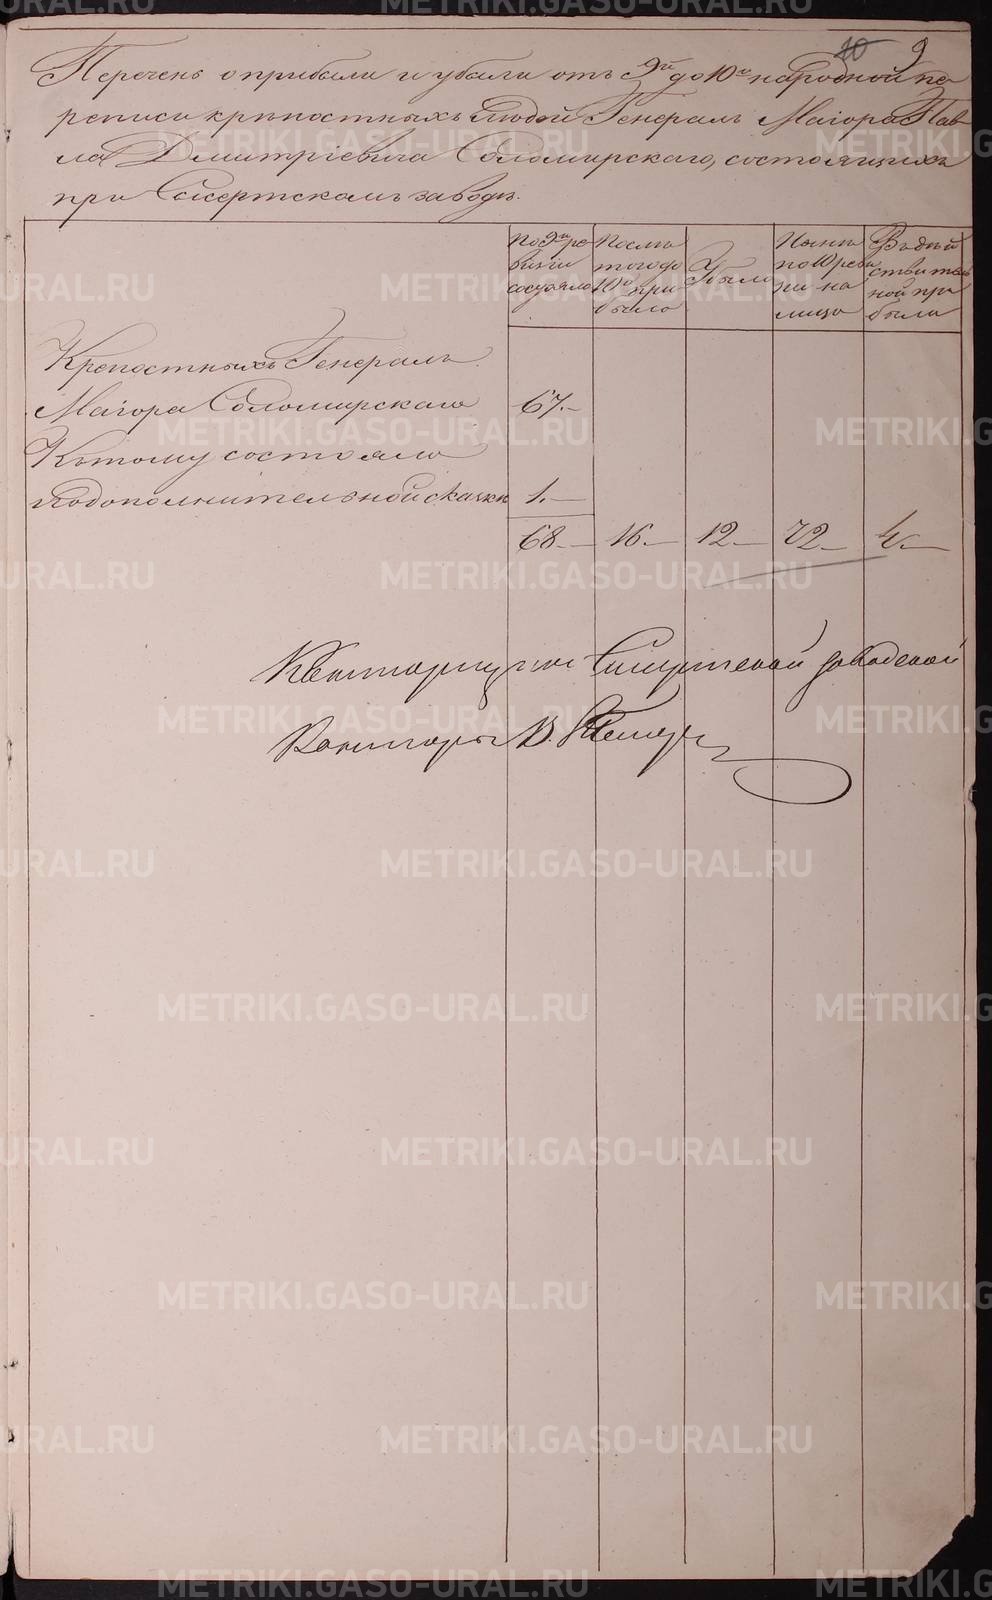 10 9
Перечень о прибыли и убыли отъ 9й до 10й народной пе
реписи крѣпостныхъ людей Генералъ Маіора Пав
ла Дмитріевича Соломирскаго, состоящихъ
при Сысертскомъ заводѣ.
По 9й ре
визіи
состояло
После
того до
10й при
было
Убыло
Ныне
по 10 реви
зіи на
лицо
Въ дѣй
ствитель
ной при
были
Крепостныхъ Генералъ
Маіора Соломирскаго 67.-
Къ тому состояло
по дополнительной сказке 1.-
68.- 16.- 12.- 72.- 4.-
Конторщикъ Сысертской заводской
Конторы В.
METRIKI.GASO-URAL.RU